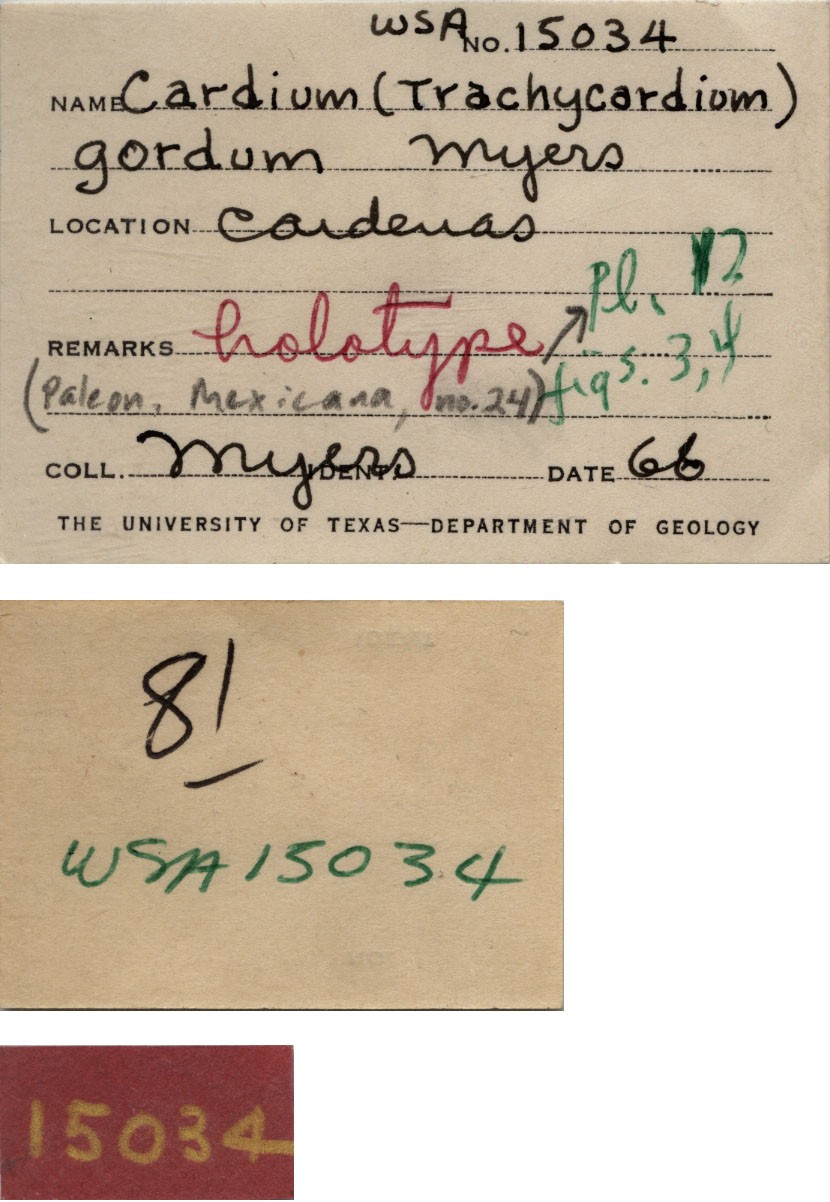 WSA NO. 15034
NAME Cardium (Trachycardium)
gordum Myers
LOCATION Cardenas
Pl. 12
REMARKS holotype figs. 3, 4
(Paleon. Mexicana, no. 24)
COLL. Myers IDENT. DATE 66
THE UNIVERSITY OF TEXAS—DEPARTMENT OF GEOLOGY
81
WSA 15034
15034